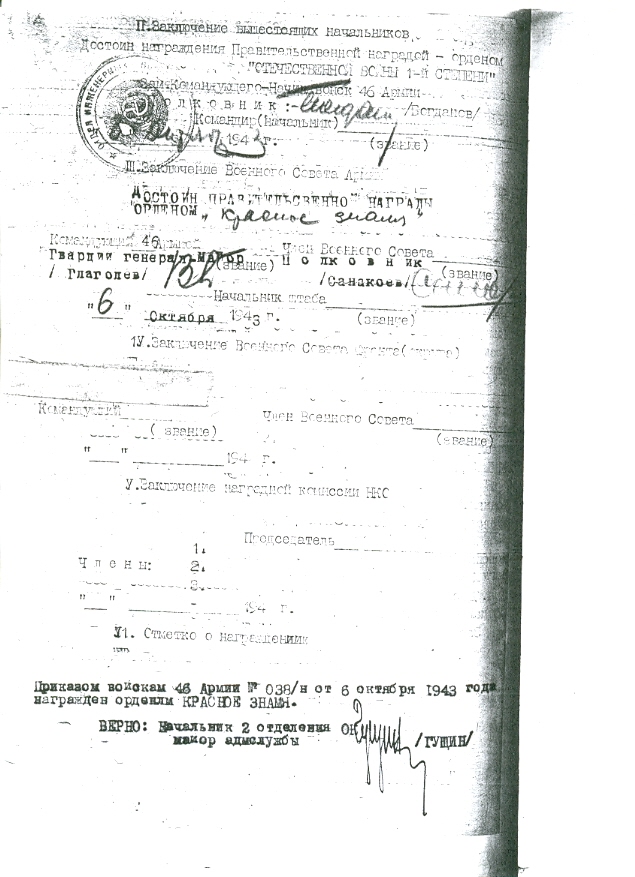 П.Заключение вышестоящих начальников
Достоин награждения Правительственной наградой – орденом
"ОТЕЧЕСТВЕННОЙ ВОЙНЫ 1-Й СТЕПЕНИ"
Зам Командующего войск 46 Армии
полковник: /Богданов/
Командир(начальник)
1943 г. (звание)
Ш.Заключение Военного Совета Армии
ДОСТОИН ПРАВИТЕЛЬСТВЕННО НАГРАДЫ
ОРДЕНОМ "Красное знамя"
Командующий 46 Армией Член Военного Совета
Гвардии генерал-майор (звание) Полковник (звание)
/ Глаголев/ /Санакоев/
Начальник штаба
"6" Октября 1943 г. (звание)
1У.Заключение Военного Совета фронта(округа)
Командующий Член Военного Совета
( звание) (звание)
" " 194 г.
У.Заключение наградной комиссии НКО
Председатель
1.
Члены: 2.
3.
" " 194 г.
У1. Отметко о награждениии
Приказом войскам 46 Армии № 038/н от 6 октября 1943 года
награжден орденлм КРАСНОЕ ЗНАМЯ.
ВЕРНО: Начальник 2 отделения ОК
майор адмслужбы /ГУЩИН/